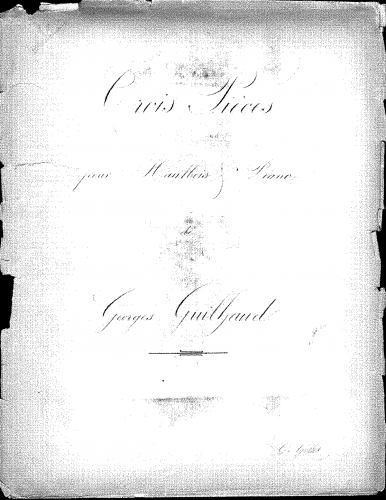 Trois Pièces
pour Hautbois & Piano
de
Georges Guilhaud